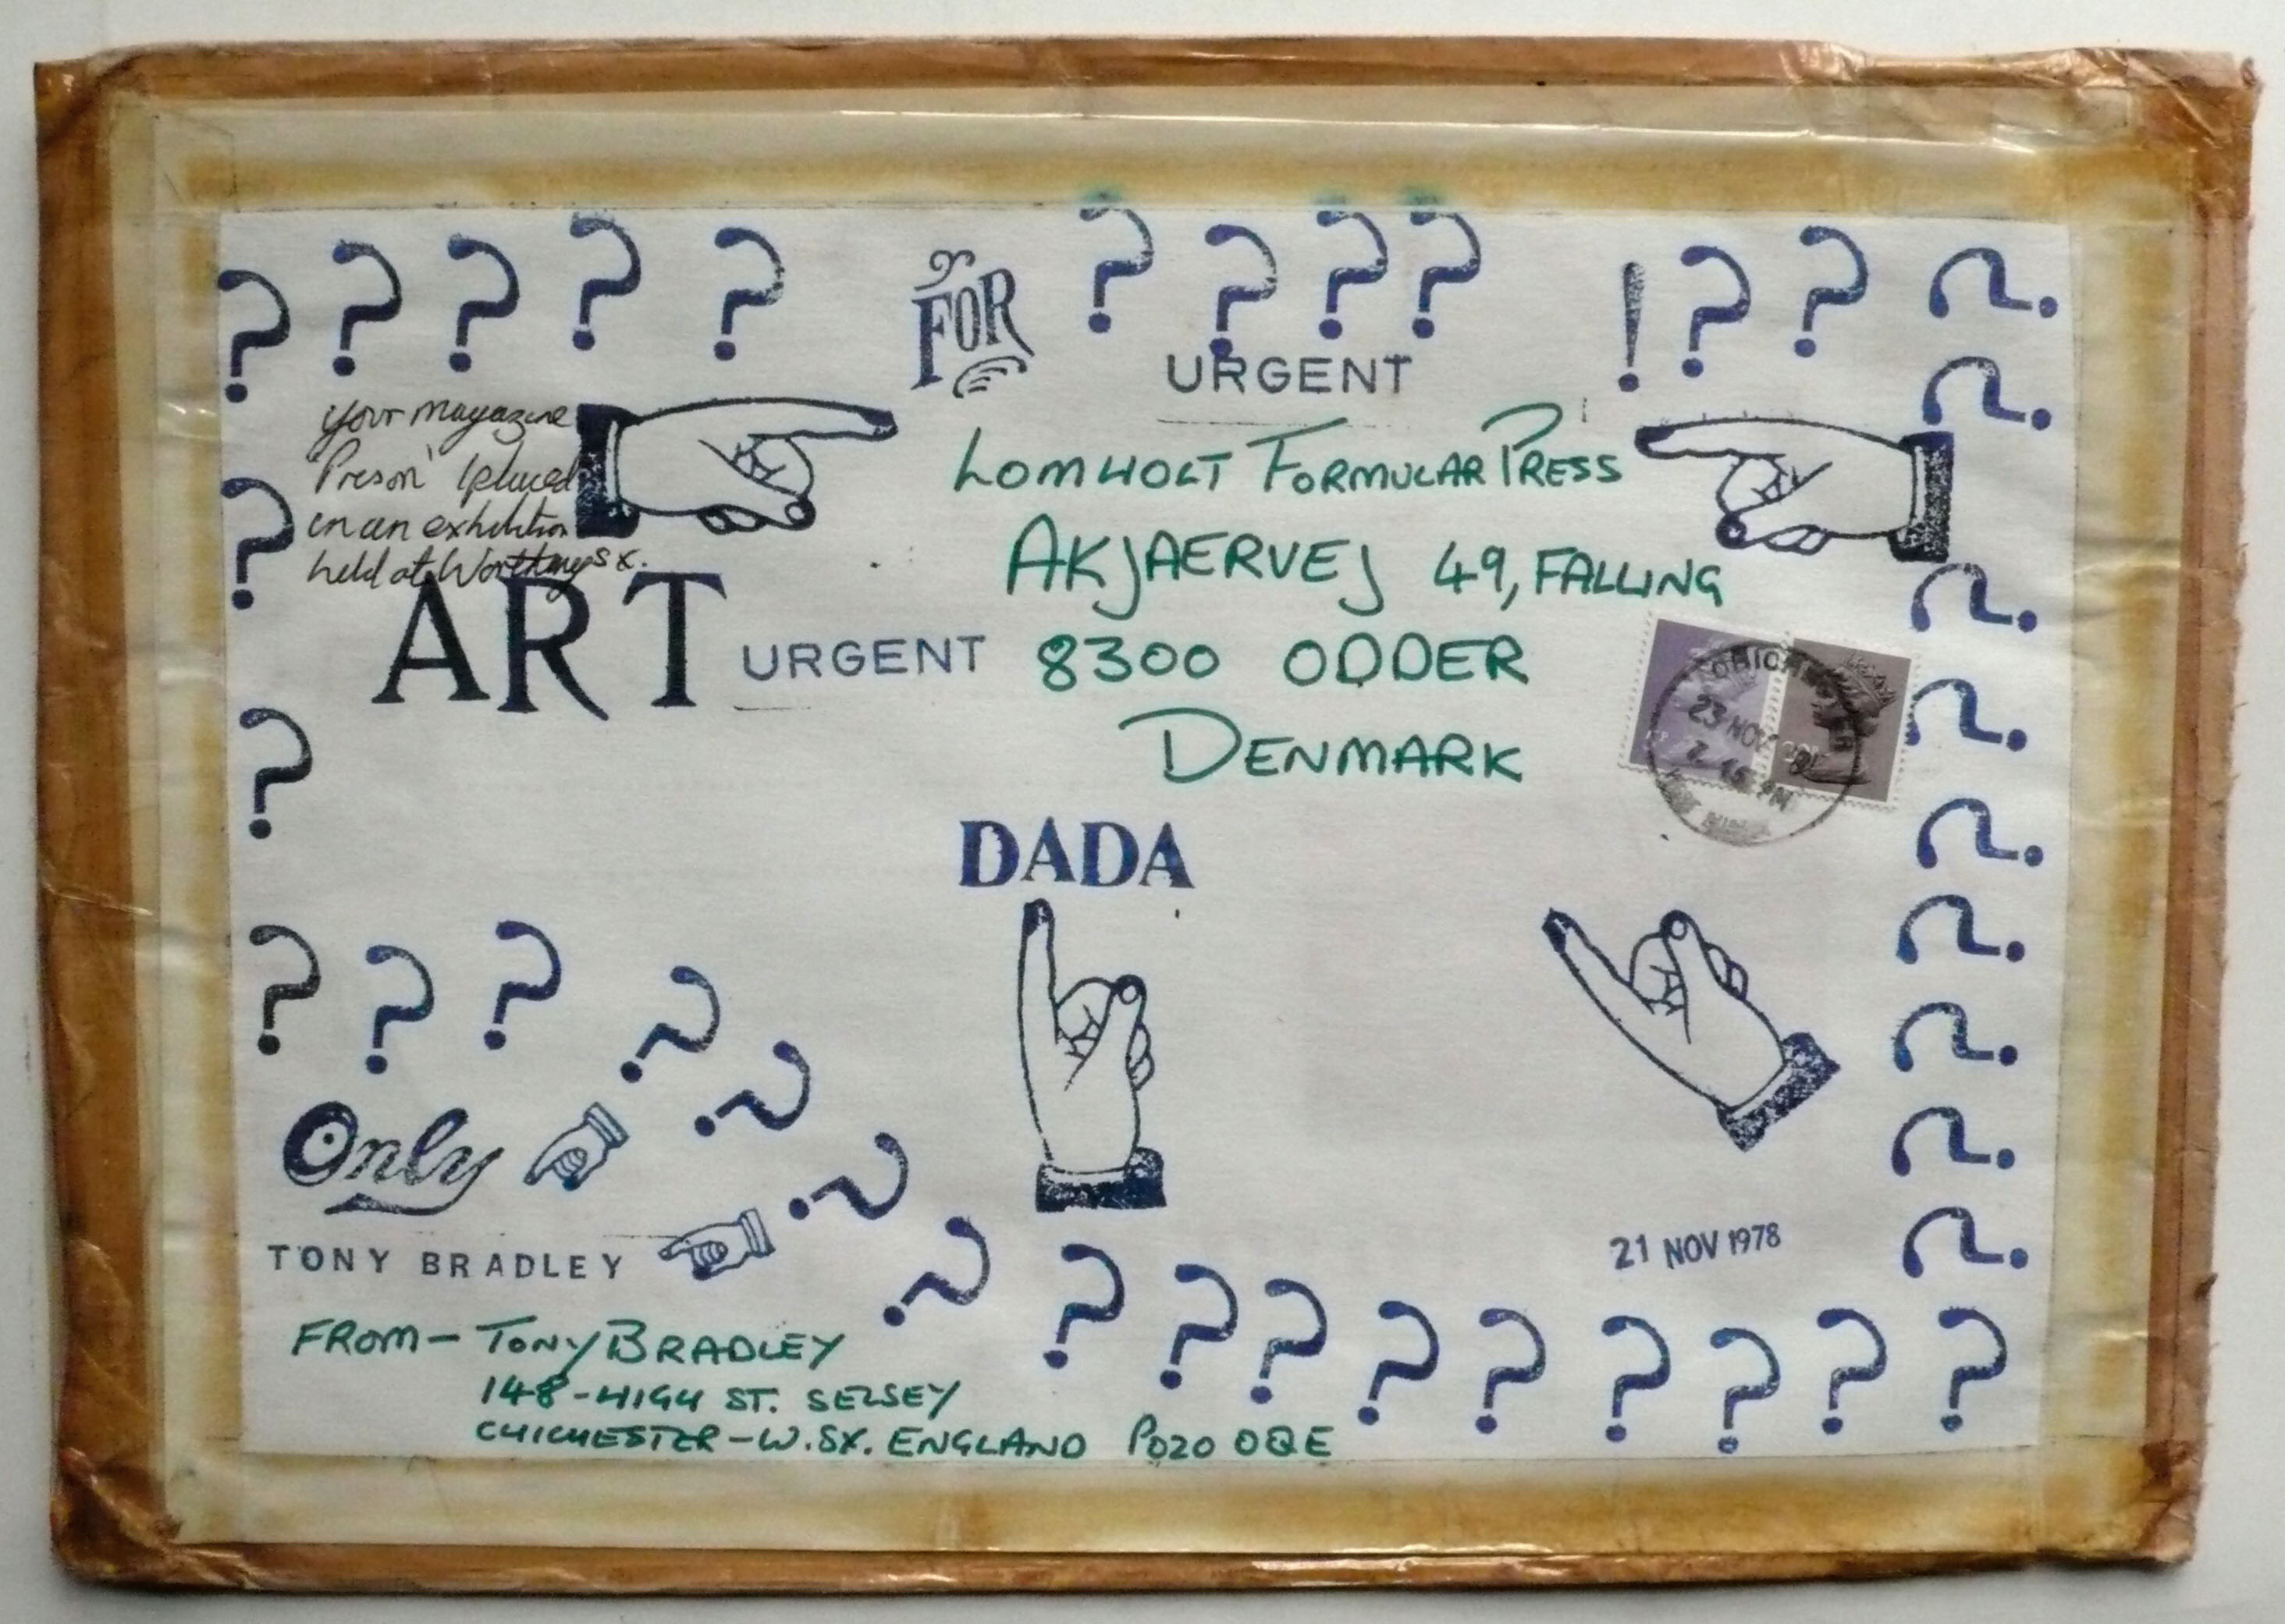 ? ? ? ? ? FOR ? ? ? ? ! ? ? ?
URGENT
?
your magazine
'Prison' I placed
in an exhibition
held at Worthing sx.
LOMHOLT FORMULAR PRESS
AKJAERVEJ 49, FALLING
8300 ODDER
DENMARK
?
?
ART URGENT
CHICHESTER
23 NOV
PM
?
?
?
DADA
? ? ? ? ? ? ?
?
?
?
?
Only
TONY BRADLEY
21 NOV 1978
FROM - TONY BRADLEY
148 - HIGH ST. SELSEY
CHICHESTER - W. SX. ENGLAND PO20 0QE
? ? ? ? ? ? ? ? ?